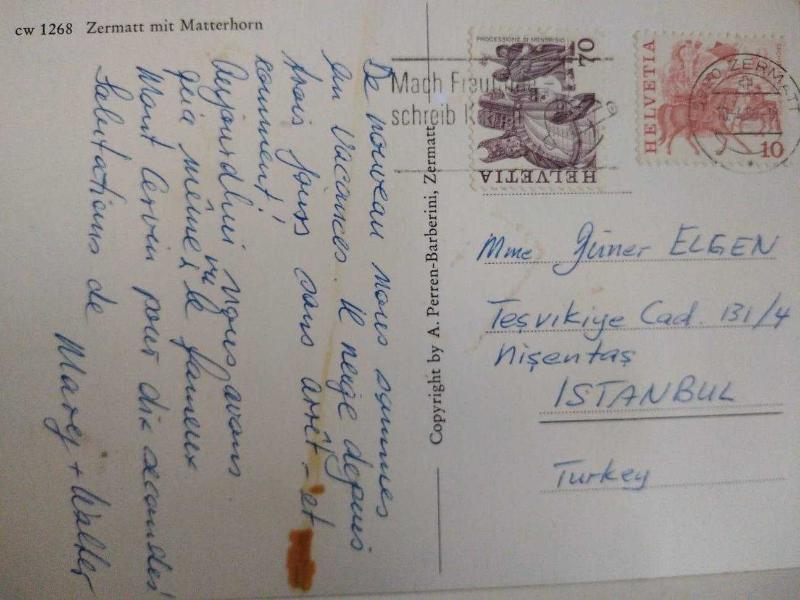 cw 1268 Zermatt mit Matterhorn
De nouveau nous sommes
en vacances. Il neige depuis
trois jours sans arrêt - et
comment!
Aujourd'hui nous avons
quà même vu le fameux
Mont Cervin pour dix secondes!
Salutations de
Marcy + Walter
Copyright by A. Perren-Barberini, Zermatt
Mach Freude
schreib
PROCESSIONE DI MENDRISIO
70
HELVETIA
HELVETIA
10
ZERMATT
Mme Güner ELGEN
Teşvikiye Cad. 131/4
Nişentaş
ISTANBUL
Turkey